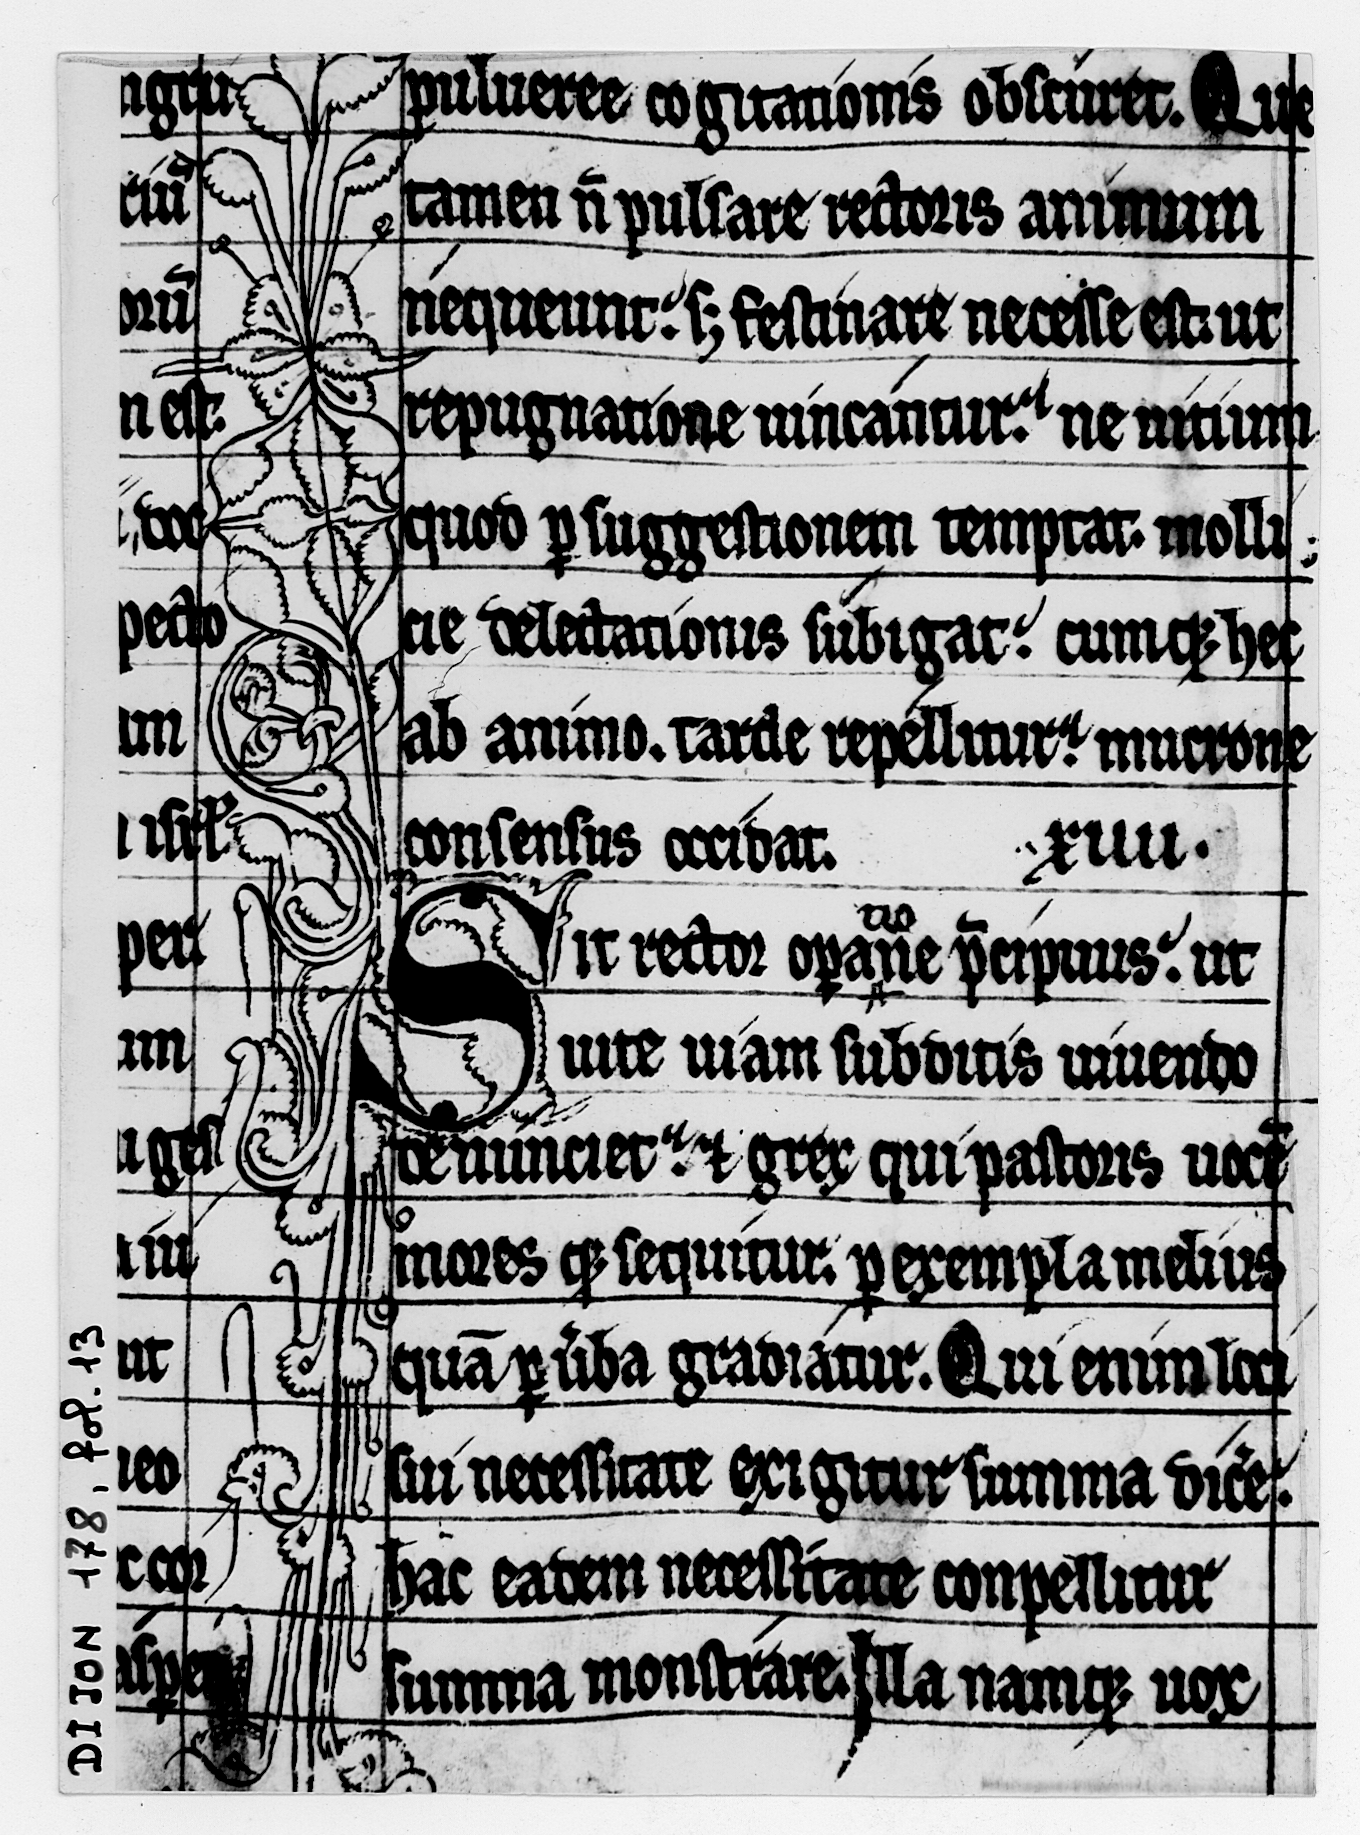 ngru
ciū
orū
n est.
doc
pecto
um
peri
um
ges
ut
neo
c cor
asper
puluere cogitationis obscuret. Que
tamen n̄ pulsare rectoris animum
nequeunt. s; festinare necesse est. ut
repugnatione uincantur. ne uitium
quod ꝑ suggestionem temptat. molli
cie delectationis subigat. cumqꝫ hec
ab animo. tarde repellitur. mucrone
consensus occidat. xiiii.
Sit rector oꝑatiōe p̄cipuus. ut
uite uiam subditis uiuendo
denunciet. ⁊ grex qui pastoris uocē
mores qꝫ sequitur. ꝑ exempla melius
quā ꝑ uʼba gradiatur. Qui enim loci
sui necessitate exigitur summa dicʼe.
hac eadem necessitate conpellitur
summa monstrare. Illa namqꝫ uox
DIJON 178, fol. 13